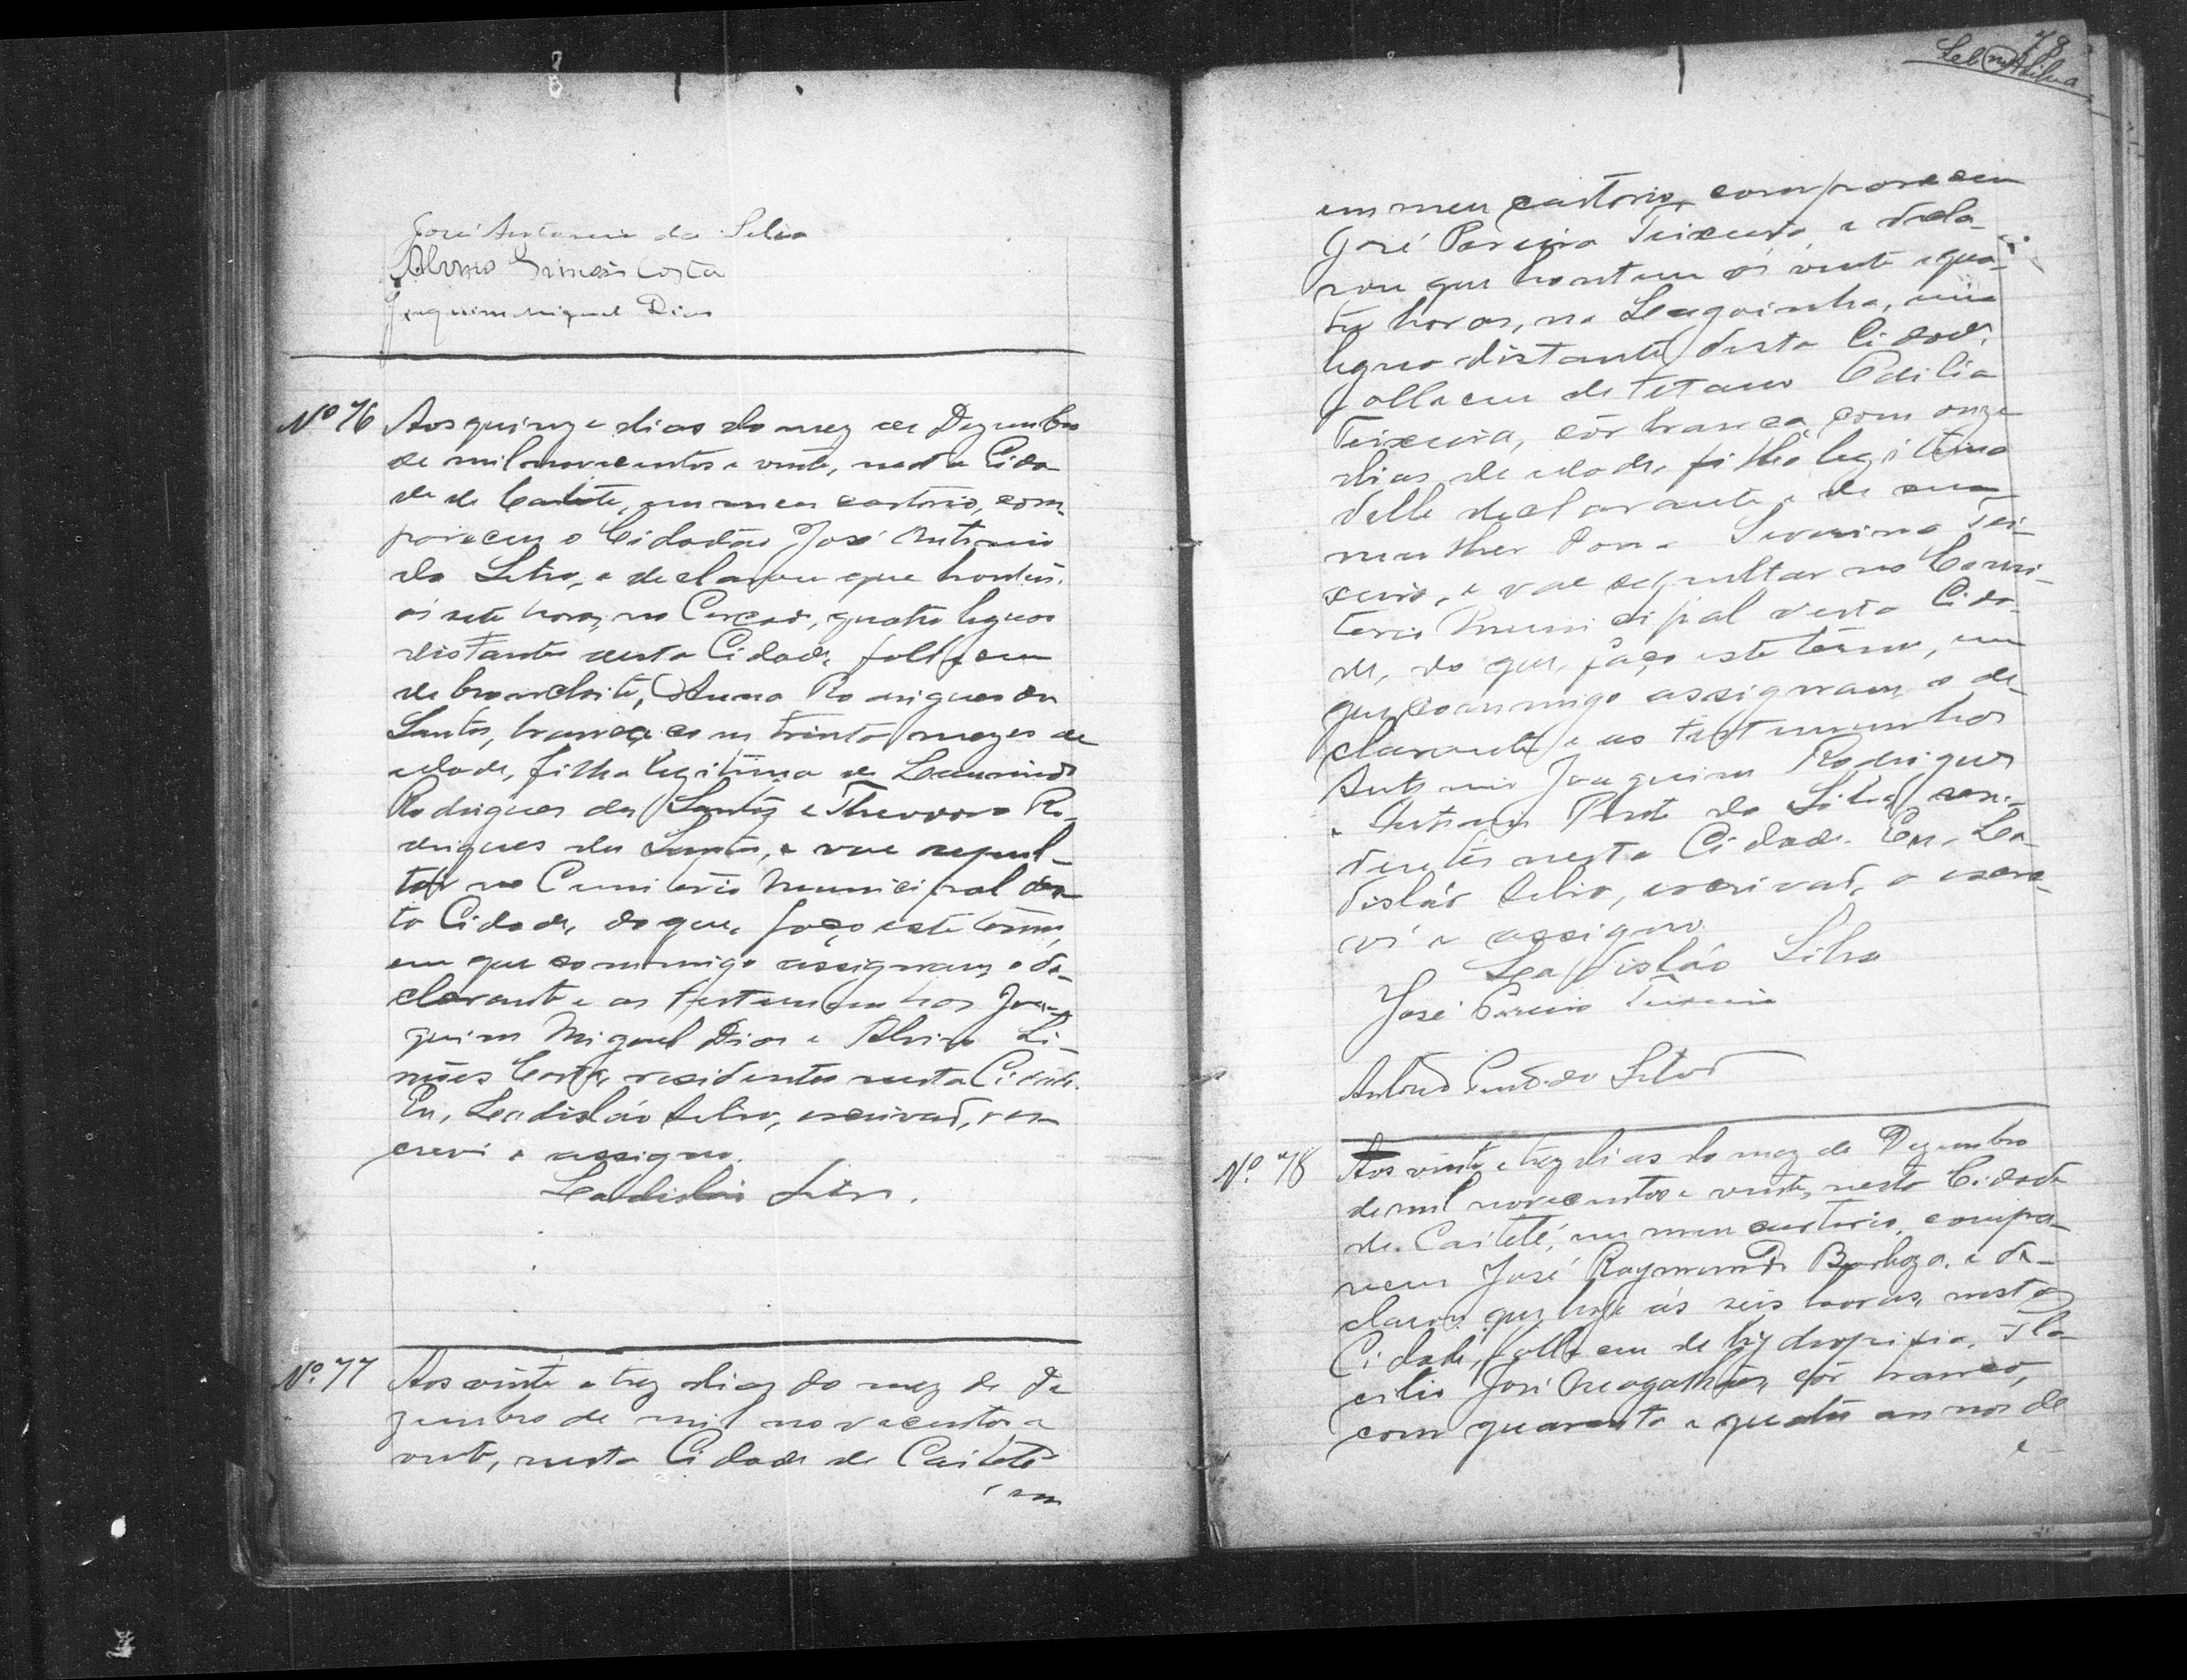 José Antonio da Silva
Alvino Simões Costa
Joaquim Miguel Dias
Nº 76 Aos quinze dias do mez de Dezembro
de mil novecentos e vinte, nesta Cida
de de Caiteté, em meu cartorio, com-
pareceu o Cidadão José Antonio
da Silva, e declarou que hontem,
ás sete horas, no Cercado, quatro leguas
distante desta Cidade, falleceu
de bronchite, Anna Rodrigues dos
Santos, branca, com trinta mezes de
edade, filha legitima de Laurindo
Rodrigues dos Santos e Theodora Ro-
drigues dos Santos, e vae sepul-
tar no Cemiterio Municipal des-
ta Cidade, do que, faço este termo,
em que commigo assignam, o de-
clarante e as testemunhas Joa-
quim Miguel Dias e Alvino Si-
mões Costa, residentes nesta Cidade.
Eu, Ladisláo Silva, escrivão, o es-
crevi e assigno.
Ladisláo Silva.
Nº 77 Aos vinte e trez dias do mez de De
zembro de mil novecentos e
vinte, nesta Cidade de Caiteté
em
78
Silva
em meu cartorio, compareceu
José Pereira Teixeira, e decla-
rou que hontem ás vinte e qua-
tro horas, na Lagoinha, uma
legua distante desta Cidade,
falleceu de tetano Edilia
Teixeira, côr branca, com onze
dias de edade, filha legitima
delle declarante e de sua
mulher Dona Severina Tei-
xeira, e vae sepultar no Cemi-
terio Municipal desta Cida-
de, do que, faço este termo, em
que commigo assignam o de-
clarante e as testemunhas
Antonio Joaquim Rodrigues
e Antonio Prute da Silva, resi-
dentes nesta Cidade. Eu, La-
disláo Silva, escrivão, o escre-
vi e assigno.
Ladisláo Silva
José Pereira Teixeira
Antonio da Silva
Nº 78 Aos vinte e trez dias do mez de Dezembro
de mil novecentos e vinte, nesta Cidade
de Caiteté, em meu cartorio, compa-
receu José Raymundo Barboza, e de-
clarou que hoje ás seis horas, nesta
Cidade, falleceu de hydropisia,
cilio José Magalhães, côr branco,
com quarenta e quatro annos de
e-